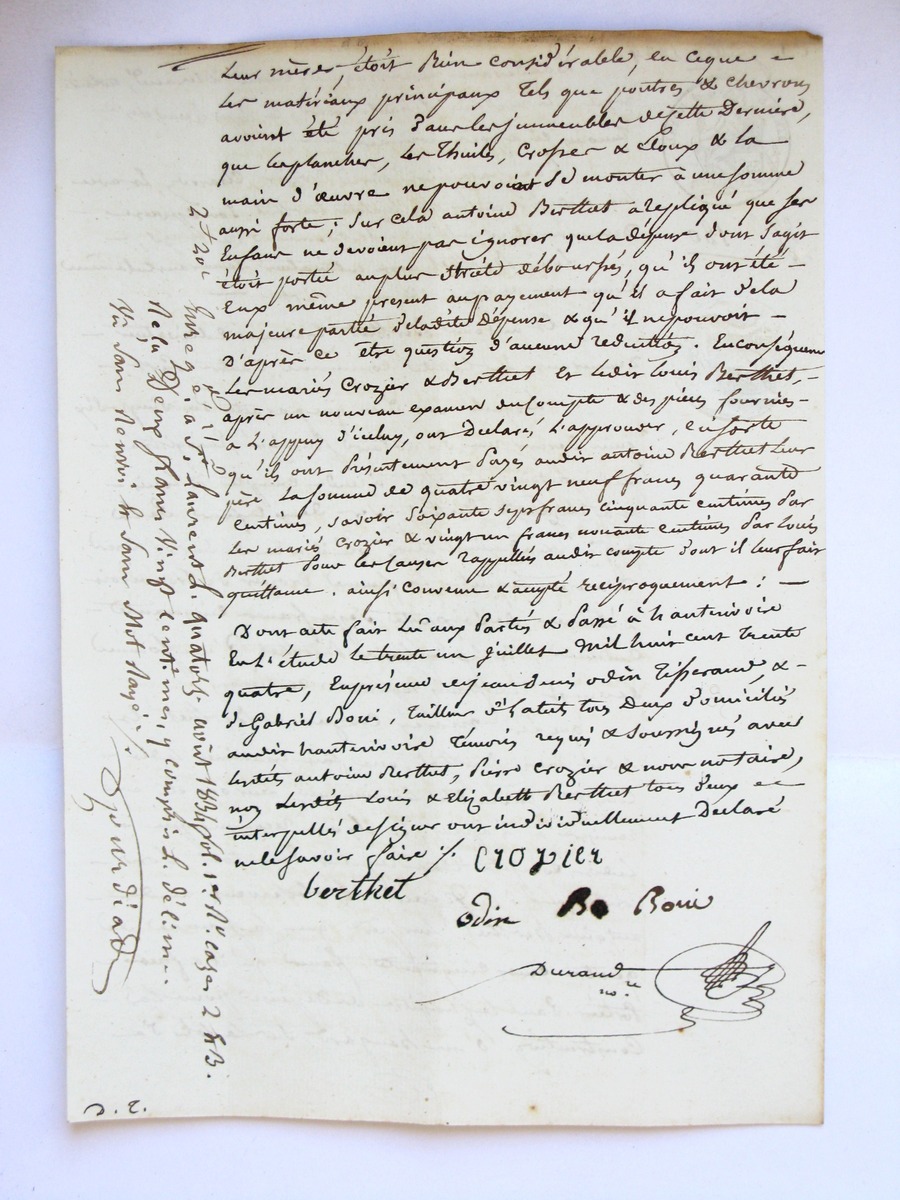 Leur mère, étoit Bien considérable, en ceque
Les matériaux principaux Tels que poutres & chevrons
avoient été pris dans les immeubles de cette Dernière,
que les planches, Les Thuiles, Crosses & Cloux & La
main d'œuvre ne pouvoient se monter à une somme
aussi forte; Sur cela antoine Berthet a repliqué que ses
Enfans ne devoient pas ignorer que la dépense dont s'agit
étoit portée au plus Stricte déboursés, qu'ils ont été
Eux même present au payement qu'il a fait de la
majeure partie de ladite Dépense & qu'il ne pouvoit
D'après ce être question d'aucune réduction. En conséquence
Les mariés Crozier & Berthet Et Ledit Louis Berthet,
après un nouveau examen du Compte & des pièces fournies
à L'appuy d'icelui, ont Déclaré L'approuver, en sorte
qu'ils ont présentement Payés audit antoine Berthet Leur
père La somme de quatre vingt neuf francs quarante
Centimes, savoir Soixante sept francs cinquante centimes Par
Les mariés Crozier & vingt un francs nonante Centimes Par Louis
Berthet Pour les causes rappellées audit compte dont il leur fait
quittance. ainsi Convenu & accepté reciproquement :
Dont acte fait Lu aux Parties & Passé à hauterivoire
En L'étude le trente un Juillet Mil huit cent trente
quatre, En présence de jean denis odin Tisserand, &
de Gabriel Boni, Tailleur d'habits tous Deux domiciliés
audit hauterivoire Témoins requis & soussignés avec
Lesdits antoine Berthet, Pierre Crozier & nous notaire,
non Lesdits Louis & Elizabeth Berthet tous deux
interpellés de signer ont individuellement Déclaré
ne le savoir faire ./.
Crozier
berthet
odin Bo Boni
Durand
no.re
2f 20c
Enregé. à St. Laurent L. quatorze août 1834 fol. 1er. Ro. cases 2 & 3.
Reçu Deux francs Vingt centimes, y compris L. décime.
Vu Sans Renvoi & Sans Mot Rayé ./.
D. T.